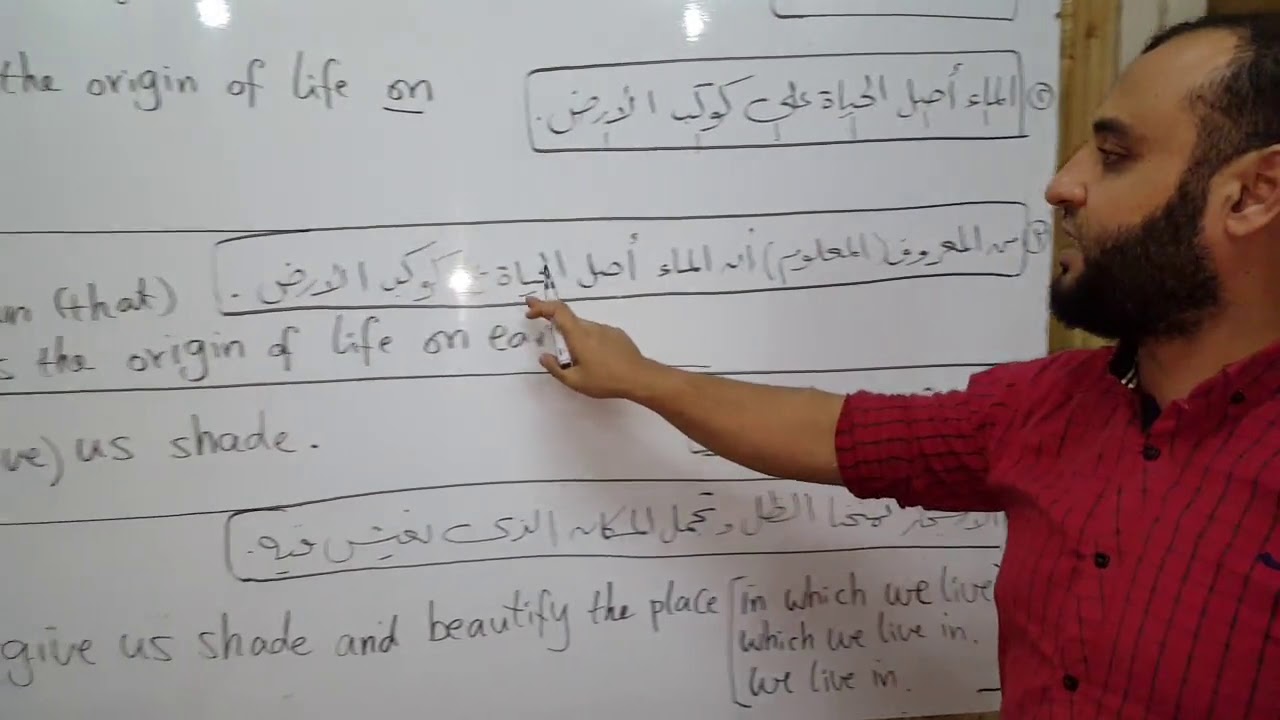 the origin of life on
② الماء أصل الحياة على كوكب الأرض.
③ من المعروف (المعلوم) أن الماء أصل الحياة كوكب الارض.
(that)
the origin of life on
us shade.
الظل وتجمل المكان الذى نعيش فيه.
give us shade and beautify the place [in which we live
which we live in.
we live in.